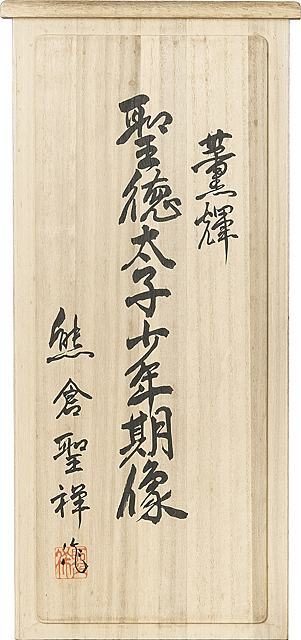 薫輝
聖徳太子少年期像
熊倉聖祥作